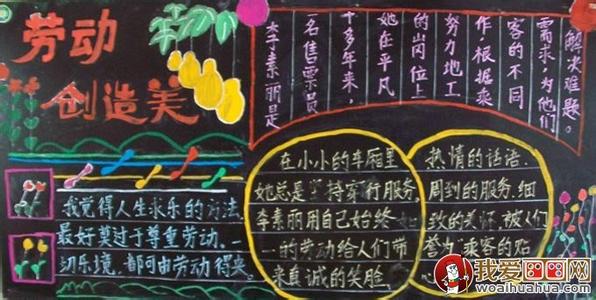 劳动
创造美
李素丽是
一名售票员
十多年来，
她在平凡
的岗位上
努力地工
作，根据乘
客的不同
需求，为他们
解决难题。
我觉得人生求乐的方法，
最好莫过于尊重劳动。一
切乐境，都可由劳动得来
在小小的车厢里
她总是坚持穿行服务.
李素丽用自己始终如
一的劳动给人们带
来真诚的笑脸
热情的话语.
周到的服务.细
致的关怀.被人们
誉为“乘客的贴
心
我爱画画网
woaihuahua.com